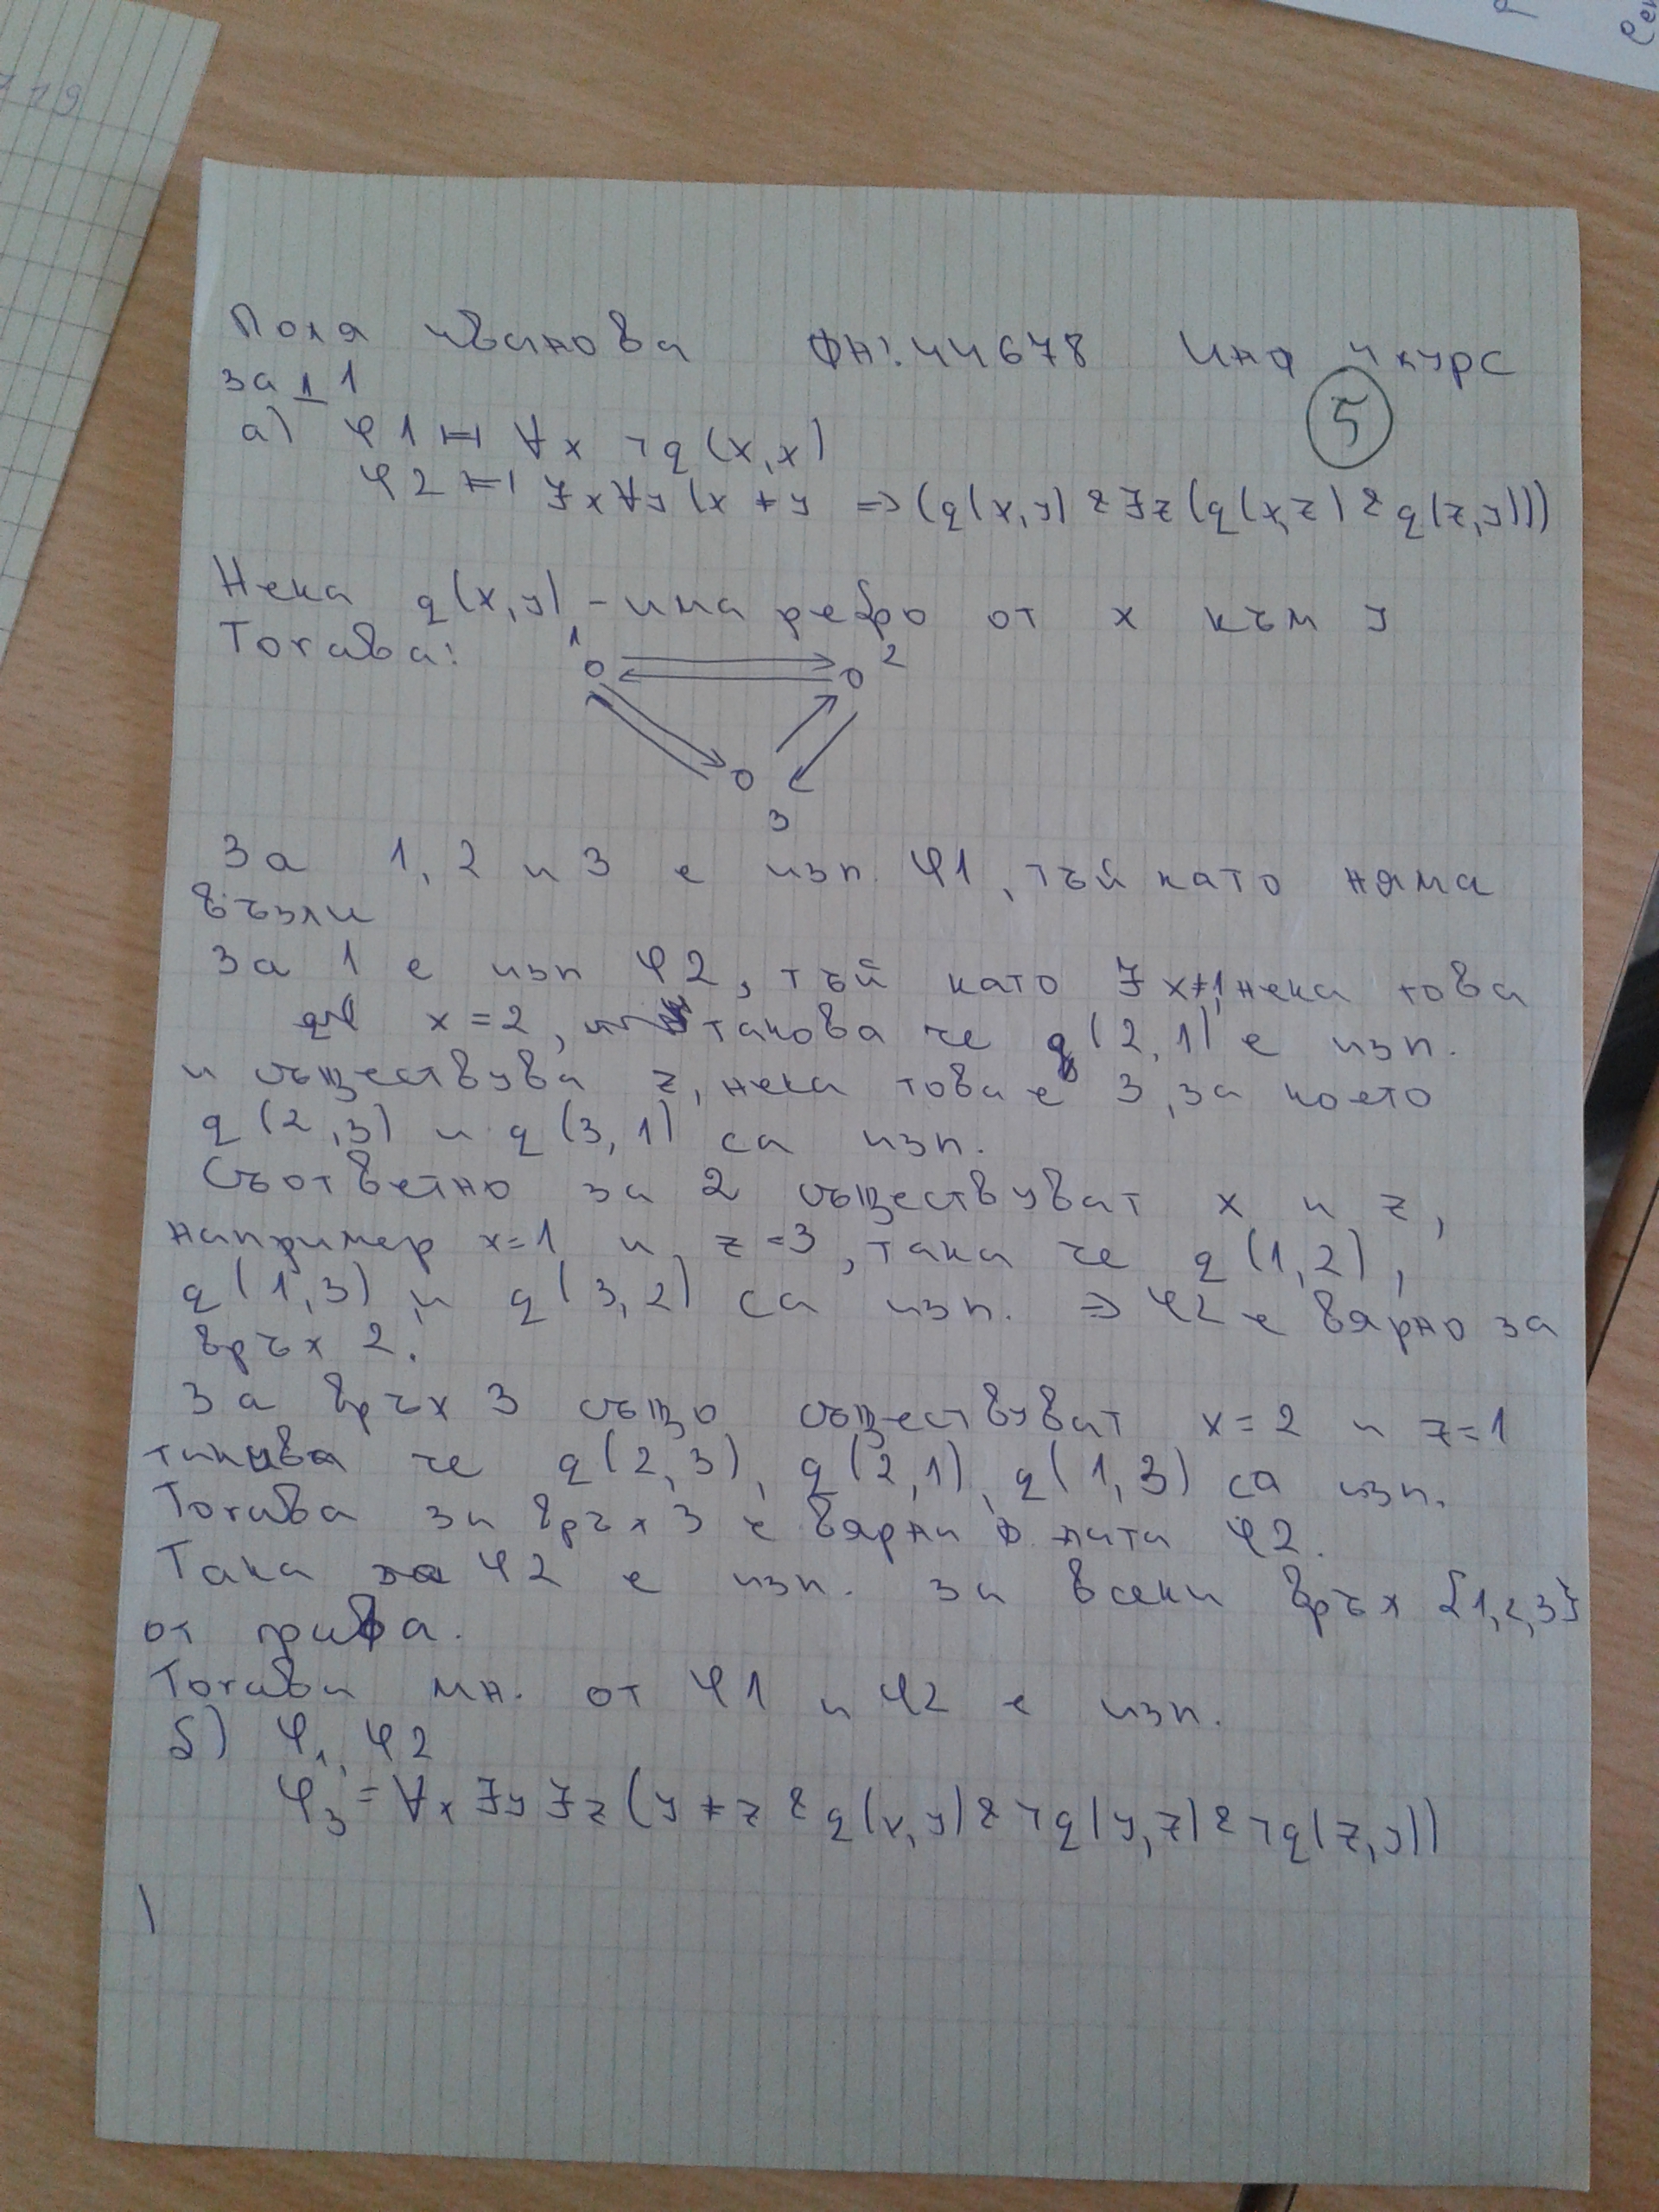 719
Поля Иванова ФН: 44678 Инф 4 курс
зад 1
5
а) φ1 ⊨ ∀x ¬q(x,x)
φ2 ⊨ ∃x∀y(x ≠ y ⇒ (q(x,y) & ∃z(q(x,z) & q(z,y)))
Нека q(x,y) - има ребро от x към y
Тогава:
1
2
3
За 1, 2 и 3 е изп. φ1, тъй като няма
възли
За 1 е изп φ2, тъй като ∃x≠1, нека това
x=2, такова че q(2,1) е изп.
и съществува z, нека това е 3, за което
q(2,3) и q(3,1) са изп.
Съответно за 2 съществуват x и z,
например x=1 и z=3, така че q(1,2),
q(1,3) и q(3,2) са изп. ⇒ φ2 е вярно за
връх 2.
За връх 3 също съществуват x=2 и z=1
такива че q(2,3), q(2,1), q(1,3) са изп.
Тогава за връх 3 е вярна φ2.
Така φ2 е изп. за всеки връх {1,2,3}
от графа.
Тогава мн. от φ1 и φ2 е изп.
б) φ1, φ2
φ3 = ∀x∃y∃z(y ≠ z & q(x,y) & ¬q(y,z) & ¬q(z,y))